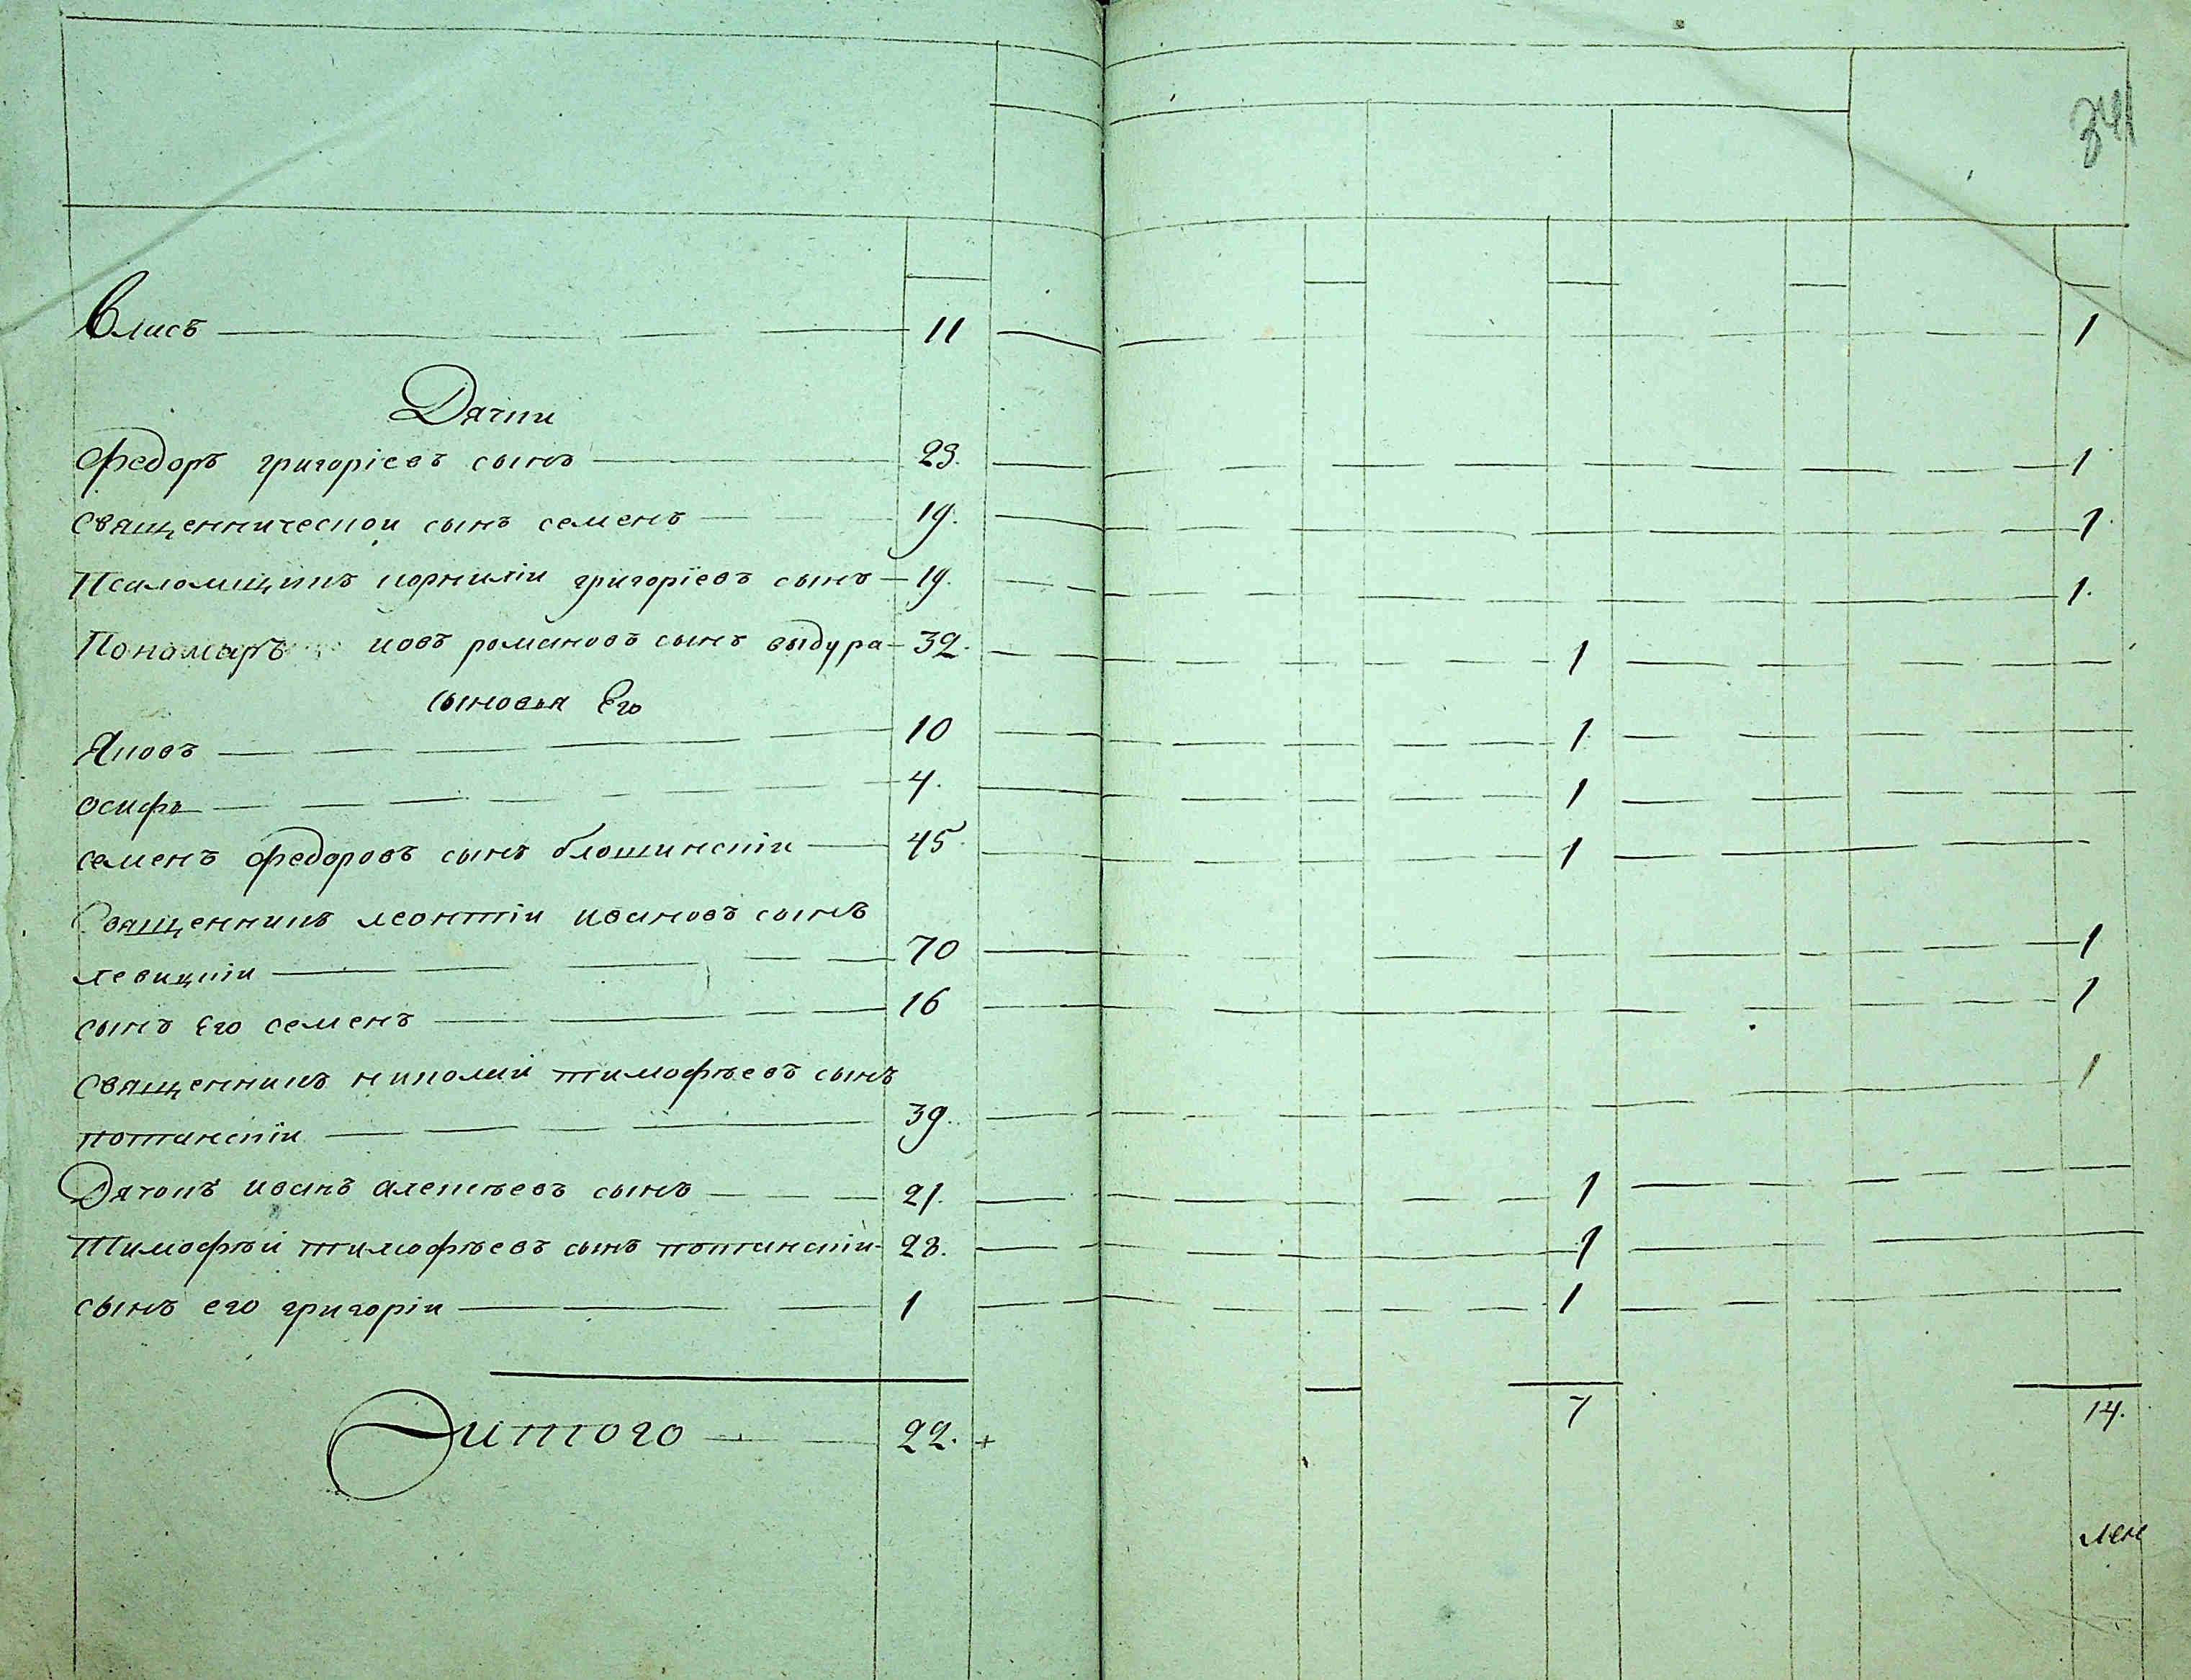 341
Влисъ 11 1
Дячки
Федоръ григоріевъ сынъ 23. 1
Священническои сынъ семенъ 19. 1
Псаломщикъ корниліи григоріевъ сынъ 19. 1.
Пономаръ иовъ романовъ сынъ выдура 32. 1
сыновья Его
Яковъ 10 1
осифъ 4. 1
семенъ федоровъ сынъ блошинскіи 45 1
Священникъ леонтіи ивановъ сынъ
левицкіи 70 1
сынъ Его семенъ 16 1
Священникъ николай тимофѣевъ сынъ
потанскіи 39. 1
Дячокъ иванъ алексѣевъ сынъ 21. 1
Тимофѣй тимофѣевъ сынъ потанскіи 28. 1
сынъ его григоріи 1 1
итого 22. 7 14.